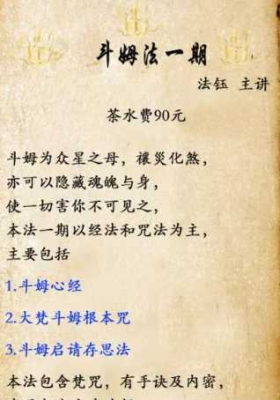 斗姆法一期
法钰 主讲
茶水费90元
斗姆为众星之母，禳災化煞，
亦可以隐藏魂魄与身，
使一切害你不可见之，
本法一期以经法和咒法为主，
主要包括
1.斗姆心经
2.大梵斗姆根本咒
3.斗姆启请存思法
本法包含梵咒，有手诀及内密，